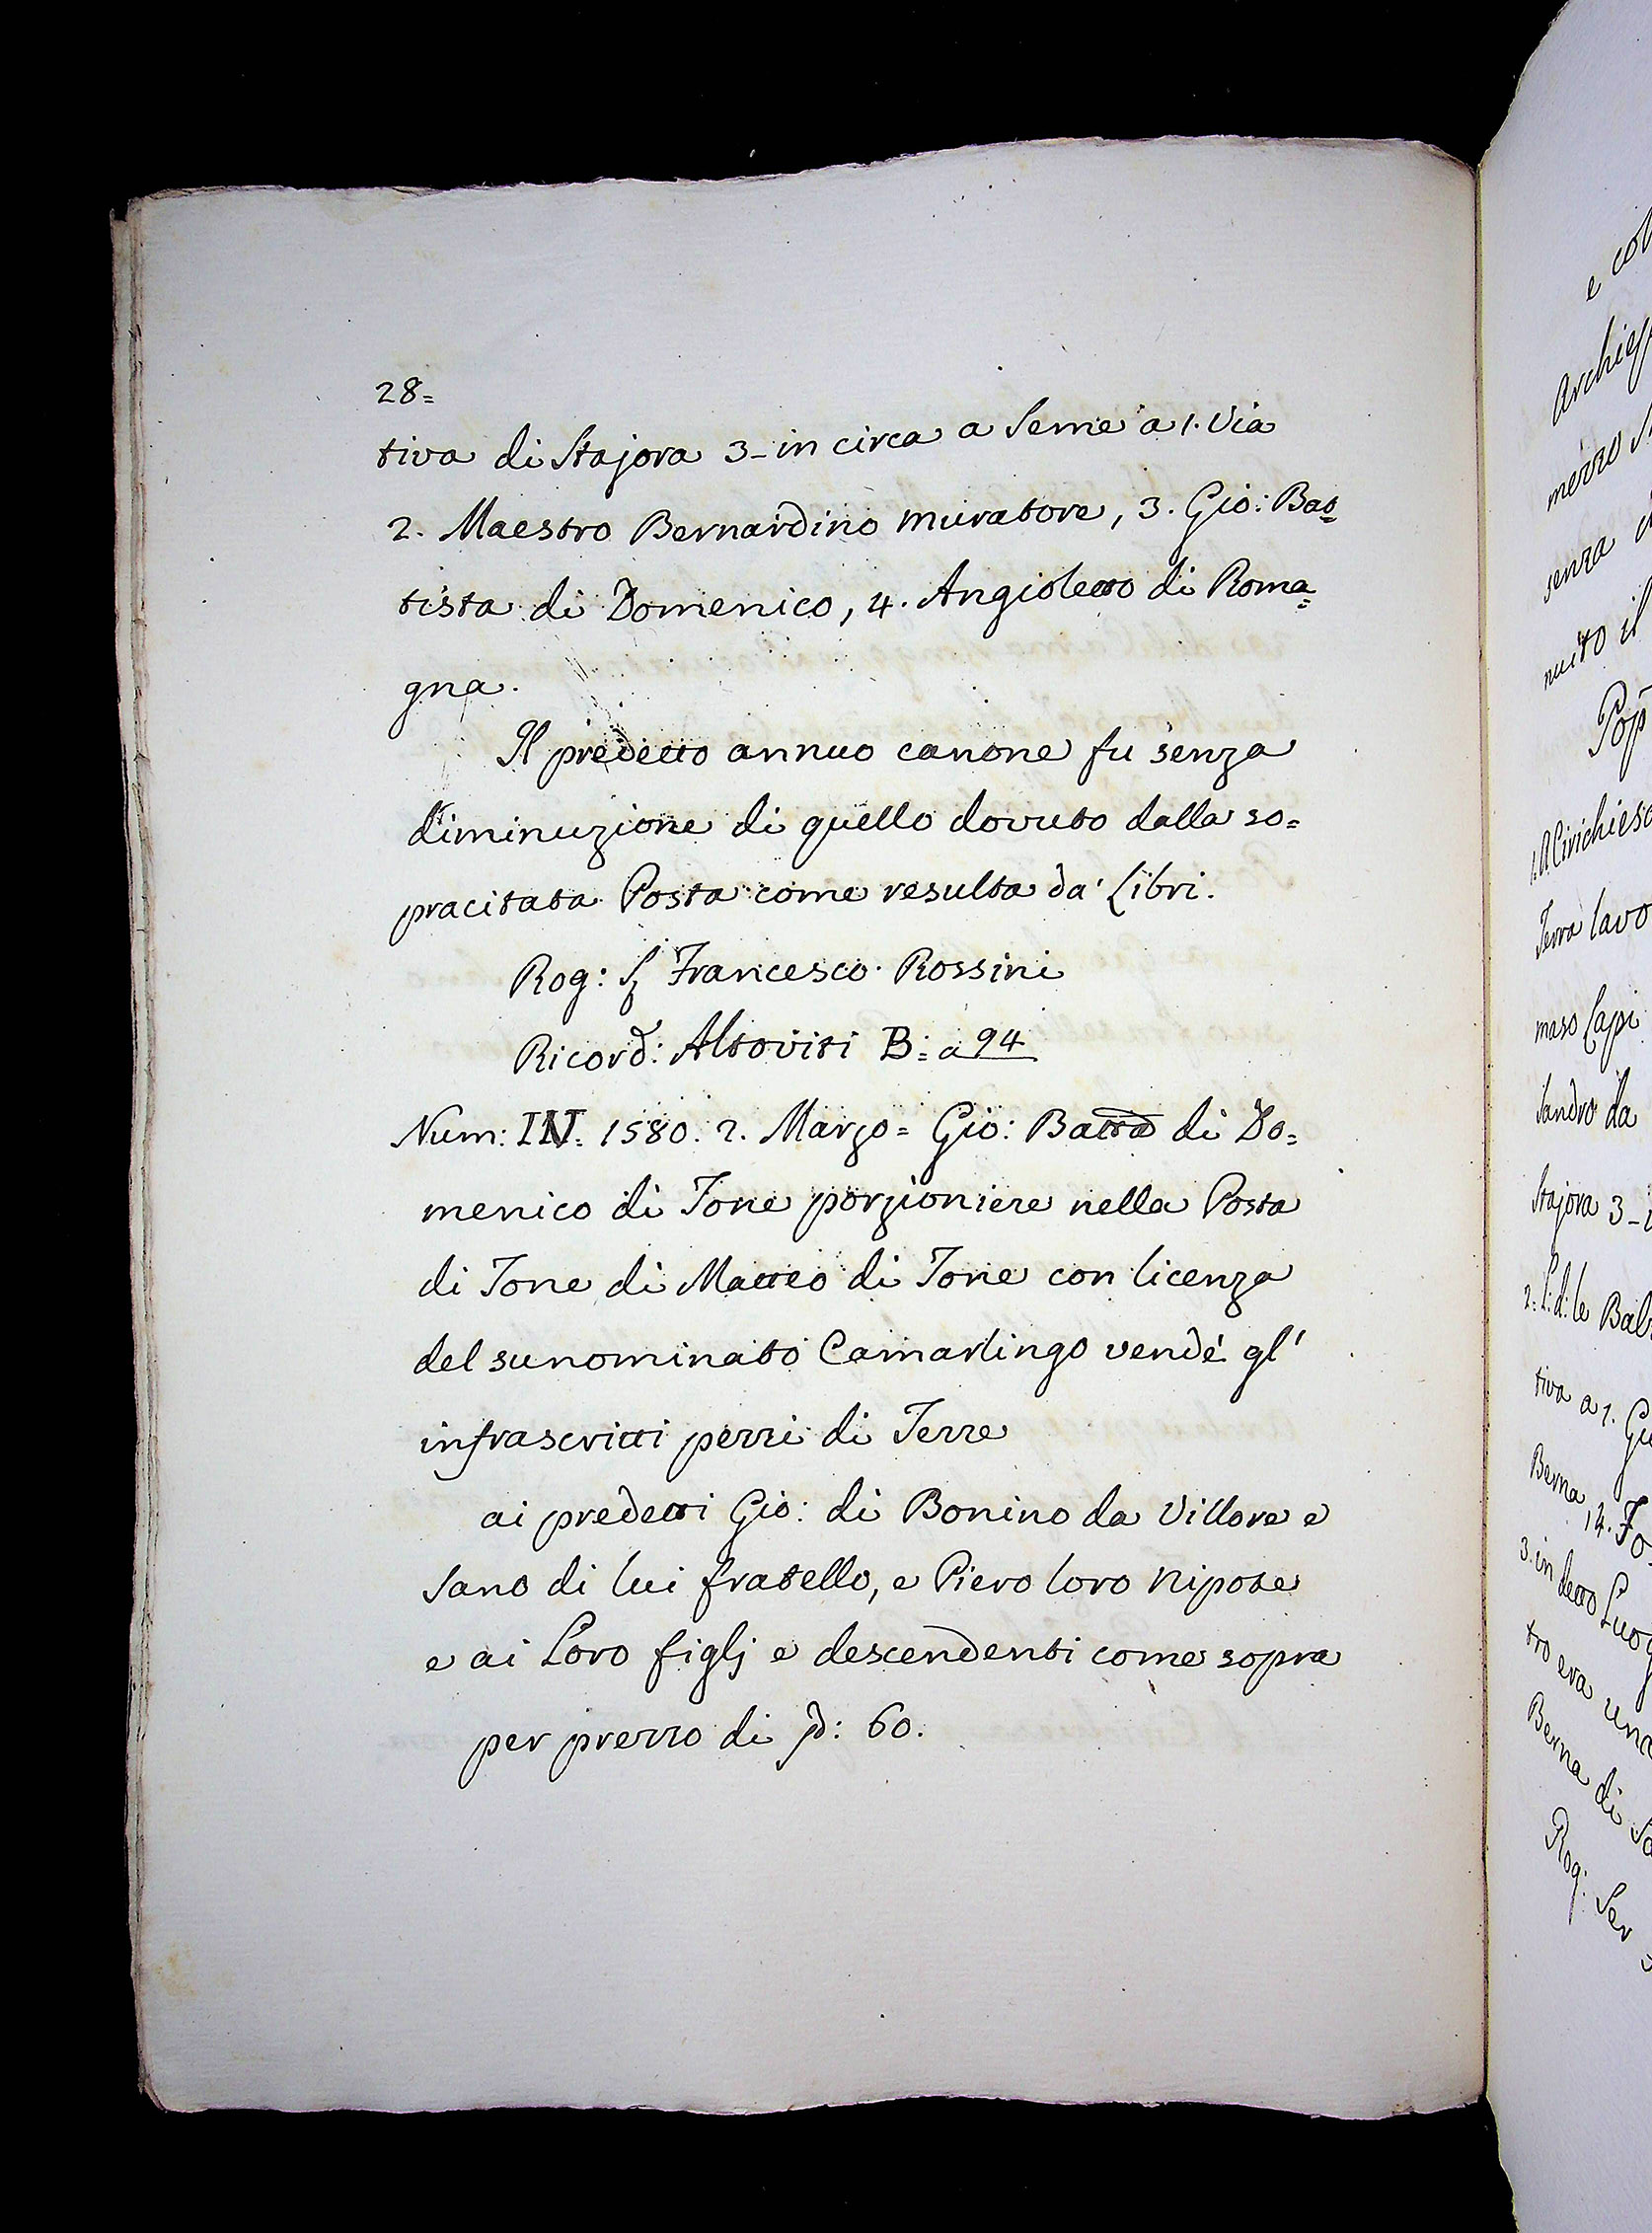 28=
tiva di Stajora 3_ in circa a Seme a 1. Via
2. Maestro Bernardino muratore, 3. Gio: Bat=
tista di Domenico, 4. Angioletto di Roma=
gna.
Il predetto annuo canone fu senza
diminuzione di quello dovuto dalla so=
pracitata Posta come resulta da' Libri.
Rog: S. Francesco Rossini
Ricord: Altoviti B: a 94
Num: IV. 1580. 2. Marzo = Gio: Batta di Do=
menico di Tone porzioniere nella Posta
di Tone di Matteo di Tone con licenza
del sunominato Camarlingo vendé gl'
infrascritti pezzi di Terre
ai predetti Gio: di Bonino da Villore e
Sano di lui fratello, e Piero loro nipote
e ai Loro figlj e descendenti come sopra
per prezzo di 60.
e col
Archie
mezzo
senza
nuito il
Pop
Terra lavo
maso Lapi
Sandro da
Stajora 3_
2= le
tiva a 1.
Berna, 4.
3. in detto Luog
tro era una
Berna di
Rog: Ser